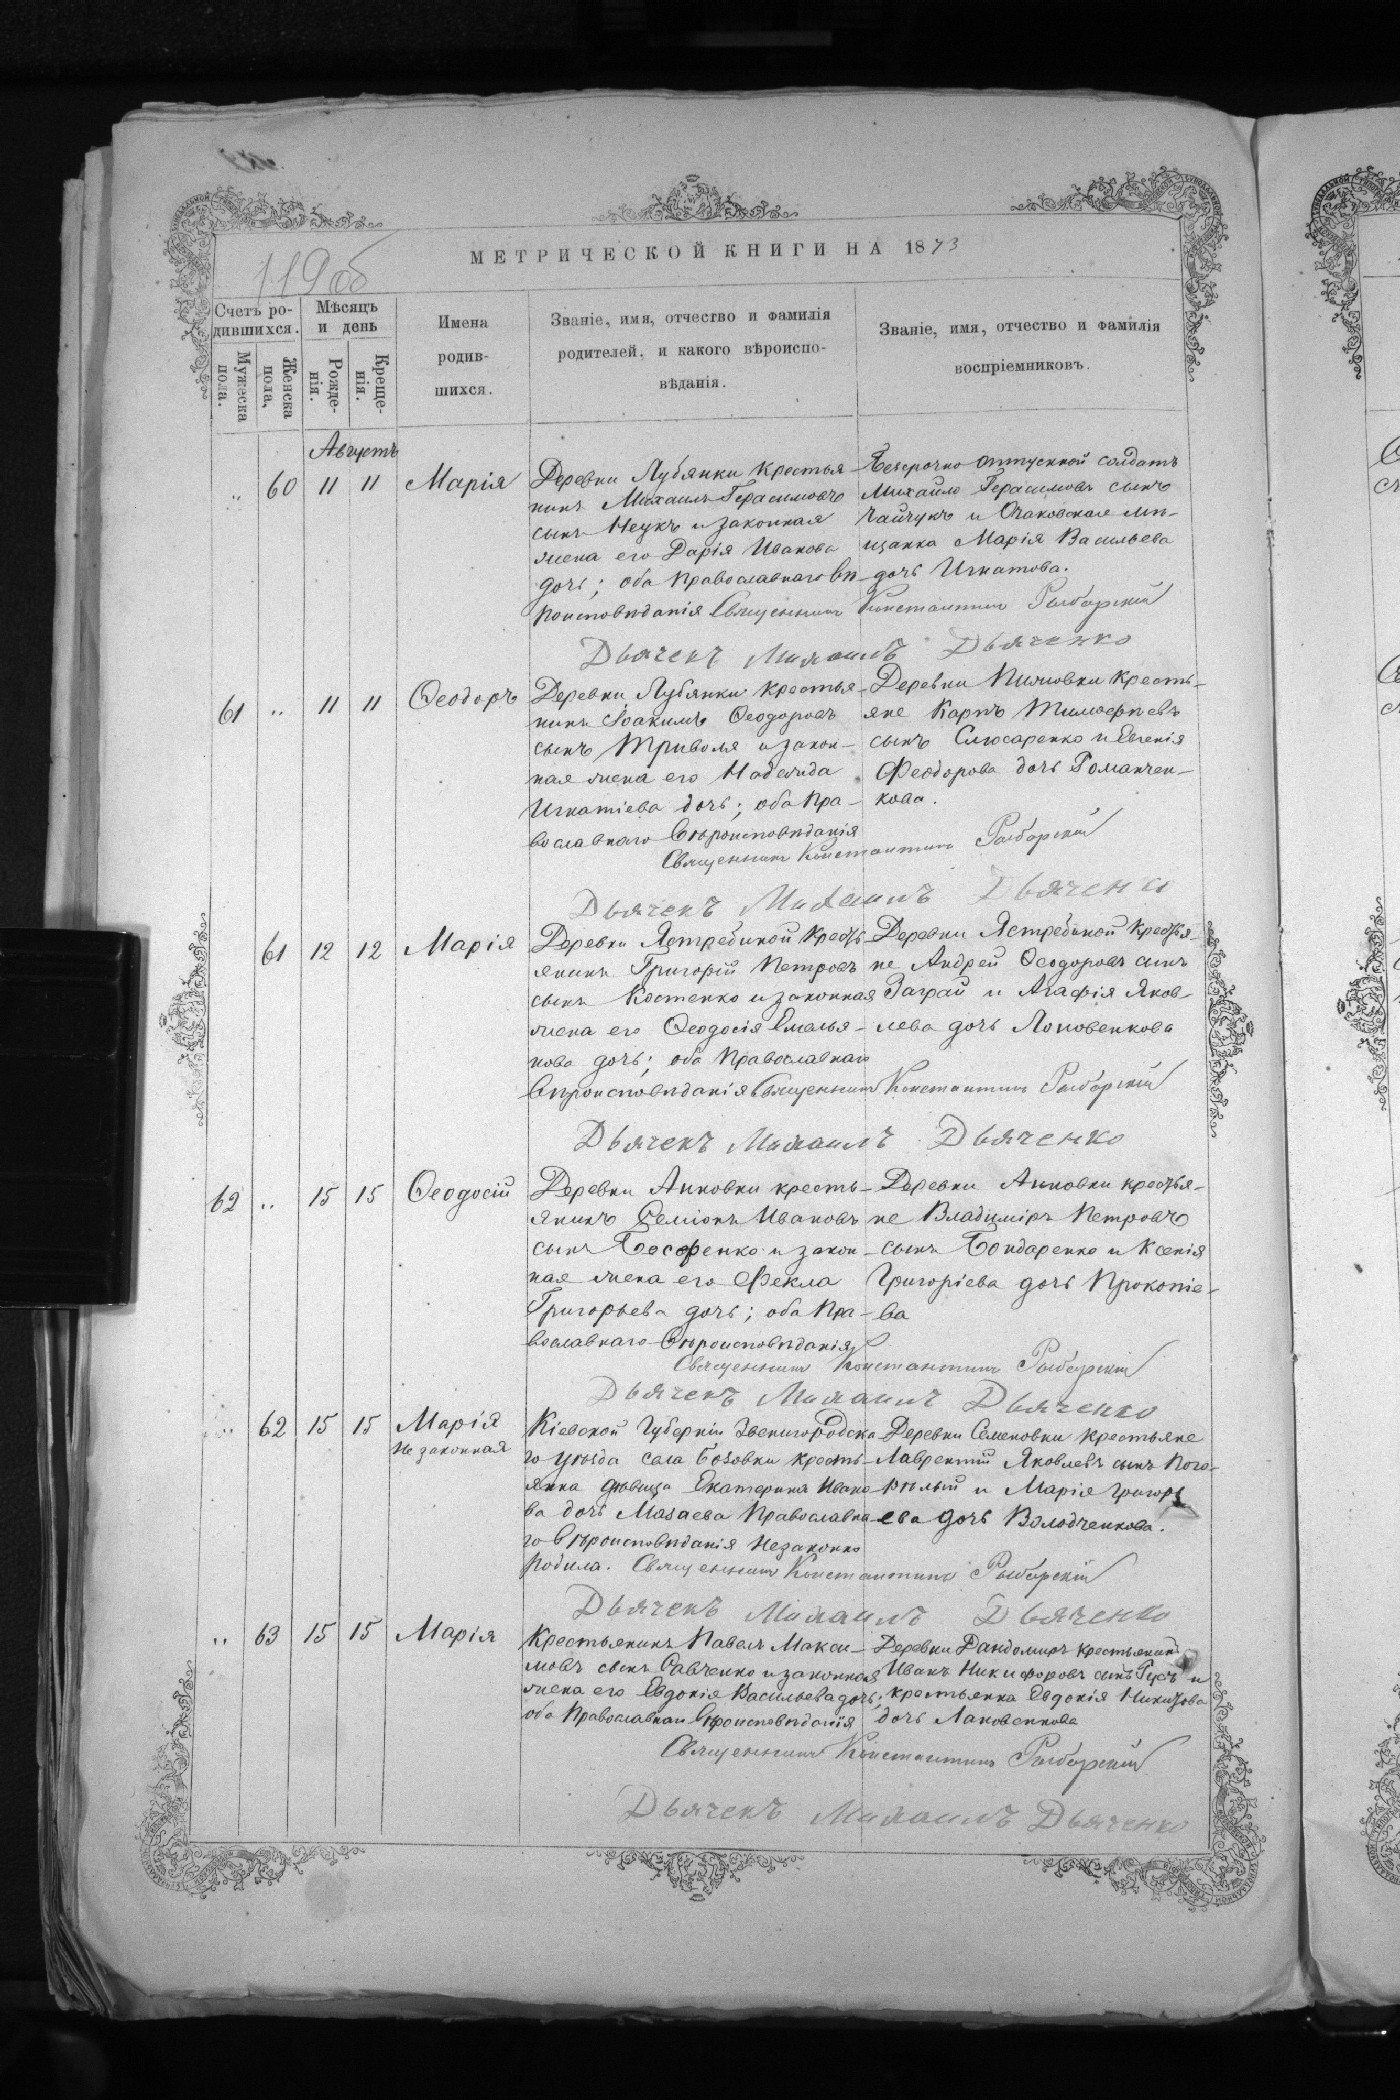 119 об
МЕТРИЧЕСКОЙ КНИГИ НА 1873
Счетъ ро-
дившихся.
Мужеска
пола.
Женска
пола,
Мѣсяцъ
и день
Рожде-
нія.
Креще-
нія.
Имена
родив-
шихся.
Званіе, имя, отчество и фамилія
родителей, и какого вѣроиспо-
вѣданія.
Званіе, имя, отчество и фамилія
воспріемниковъ.
Августъ
„ 60 11 11 Марія
Деревни Лубянки крестья-
нинъ Михаилъ Герасимовъ
сынъ Неукъ и законная
жена его Дарія Иванова
дочь; оба православнаго вѣ-
роисповѣданія
Безсрочно отпускной солдатъ
Михайло Герасимовъ сынъ
Чайчукъ и Очаковская мѣ-
щанка Марія Васильева
дочь Игнатова.
Священникъ Константинъ Рыбарскій
Дьячекъ Михаилъ Дьяченко
61 „ 11 11 Ѳеодоръ
Деревни Лубянки крестья-
нинъ Іоакимъ Ѳеодоровъ
сынъ Триволя и закон-
ная жена его Надежда
Игнатіева дочь; оба пра-
вославнаго вѣроисповѣданія
Деревни кресть-
яне Карпъ Тимоѳеевъ
сынъ Слюсаренко и Евгенія
Феодорова дочь Романчен-
кова.
Священникъ Константинъ Рыбарскій
Дьячекъ Михаилъ Дьяченко
61 12 12 Марія
Деревни Ястребиной кресть-
янинъ Григорій Петровъ
сынъ Костенко и законная
жена его Ѳеодосія Емелья-
нова дочь; оба православнаго
вѣроисповѣданія
Деревни Ястребиной крестья-
не Андрей Ѳеодоровъ сынъ
Заграй и Агафія Яков-
лева дочь Лоповенкова
Священникъ Константинъ Рыбарскій
Дьячекъ Михаилъ Дьяченко
62 „ 15 15 Ѳеодосій
Деревни Анновки кресть-
янинъ Семіонъ Ивановъ
сынъ и закон-
ная жена его Фекла
Григорьева дочь; оба пра-
вославнаго вѣроисповѣданія
Деревни Анновки крестья-
не Владиміръ Петровъ
сынъ Бондаренко и Ксенія
Григоріева дочь Прокопіе-
ва
Священникъ Константинъ Рыбарскій
Дьячекъ Михаилъ Дьяченко
„ 62 15 15 Марія
Незаконная
Кіевской Губерніи Звенигородска
го уѣзда села Бозовки кресть-
янка дѣвица Екатерина Ивано
ва дочь Мазаева Православна
го вѣроисповѣданія незаконно
родила.
Деревни Семеновки крестьяне
Лаврентій Яковлевъ сынъ Пого-
рѣлый и Марія Григорь
ева дочь Володченкова.
Священникъ Константинъ Рыбарскій
Дьячекъ Михаилъ Дьяченко
„ 63 15 15 Марія
Крестьянинъ Павелъ Макси-
мовъ сынъ Савченко и законная
жена его Евдокія Васильева дочь;
оба Православнаго вѣроисповѣданія
Деревни крестьянинъ
Иванъ Никифоровъ сынъ Гусъ и
крестьянка Евдокія
дочь Лаковенкова
Священникъ Константинъ Рыбарскій
Дьячекъ Михаилъ Дьяченко